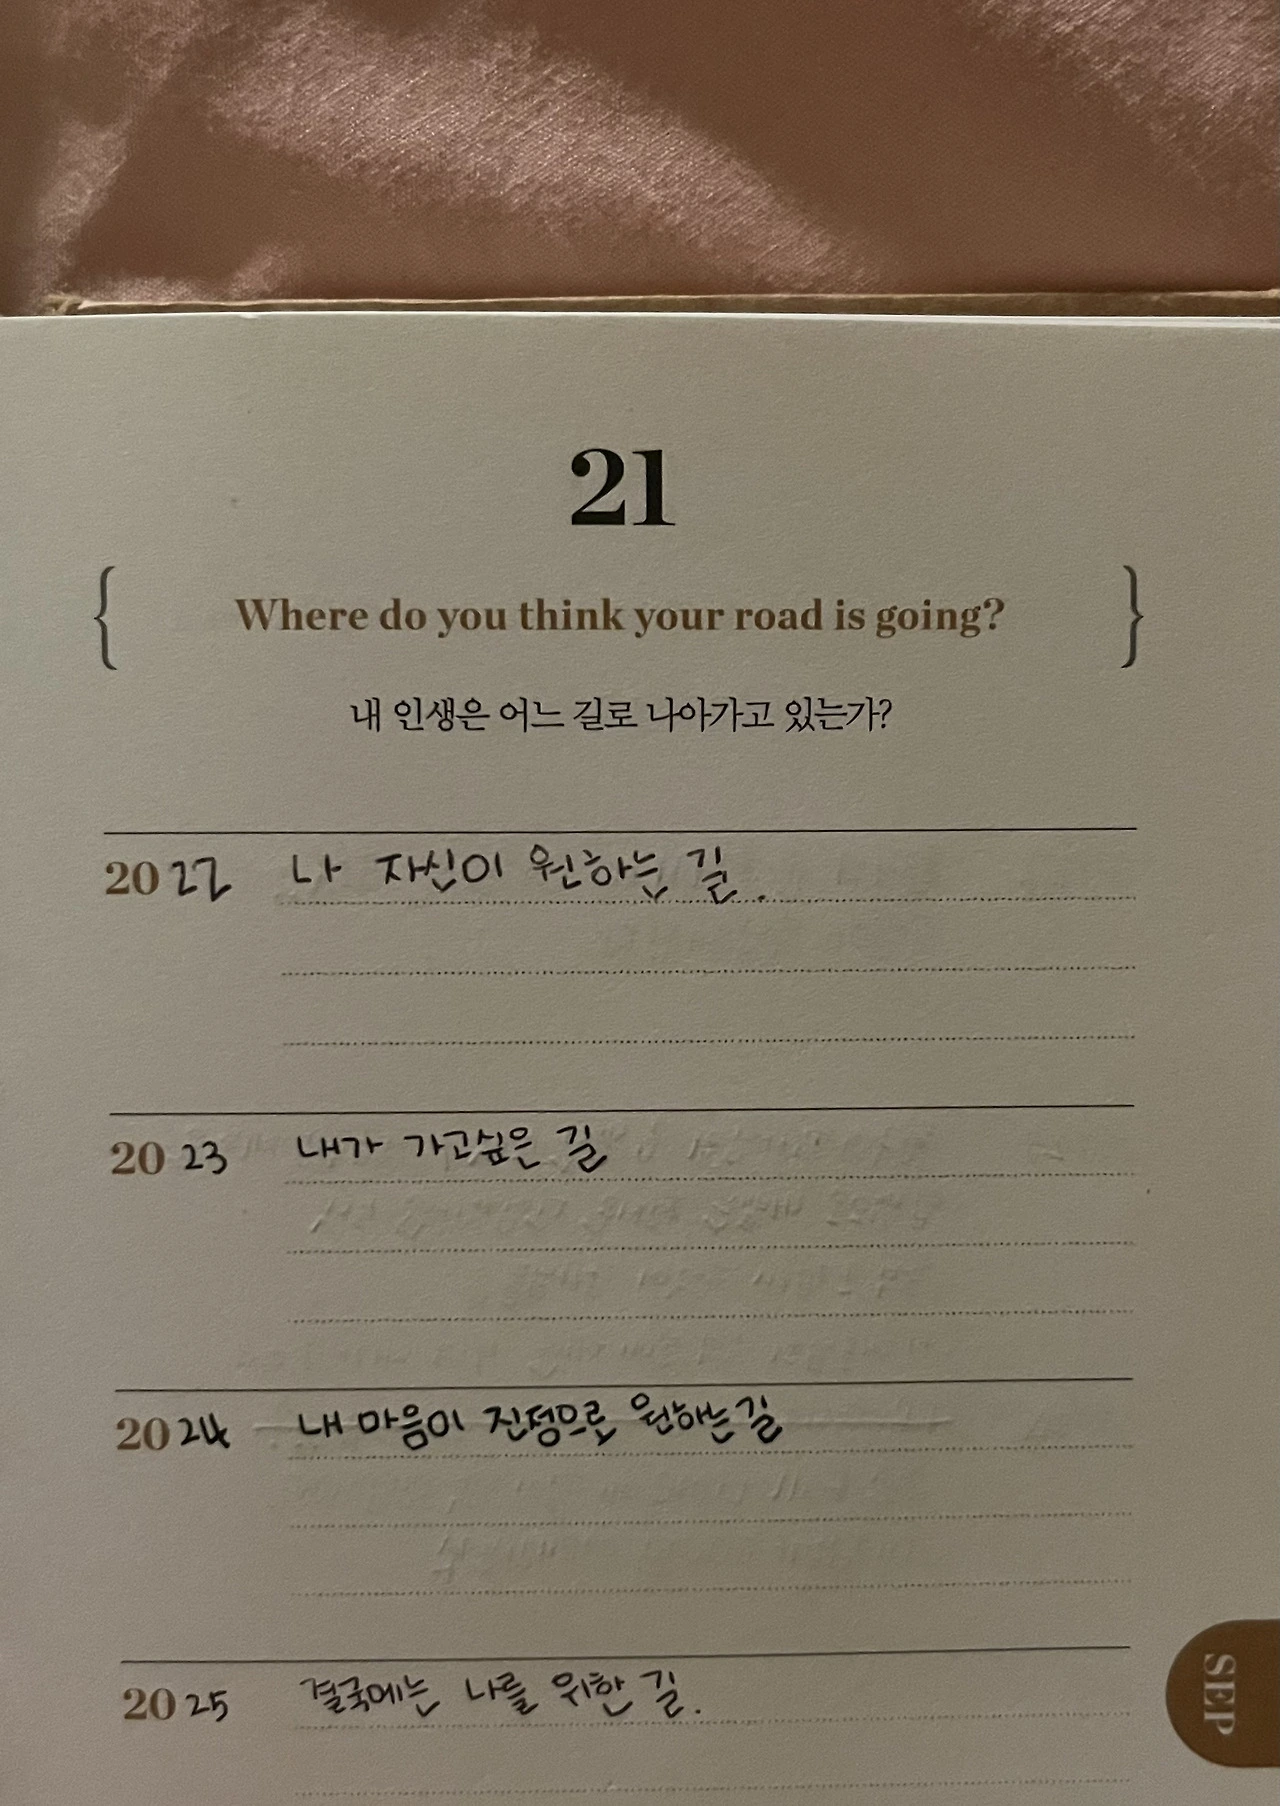 21
{ Where do you think your road is going? }
내 인생은 어느 길로 나아가고 있는가?
2022 나 자신이 원하는 길.
2023 내가 가고싶은 길
2024 내 마음이 진정으로 원하는 길
2025 결국에는 나를 위한 길.
SEP